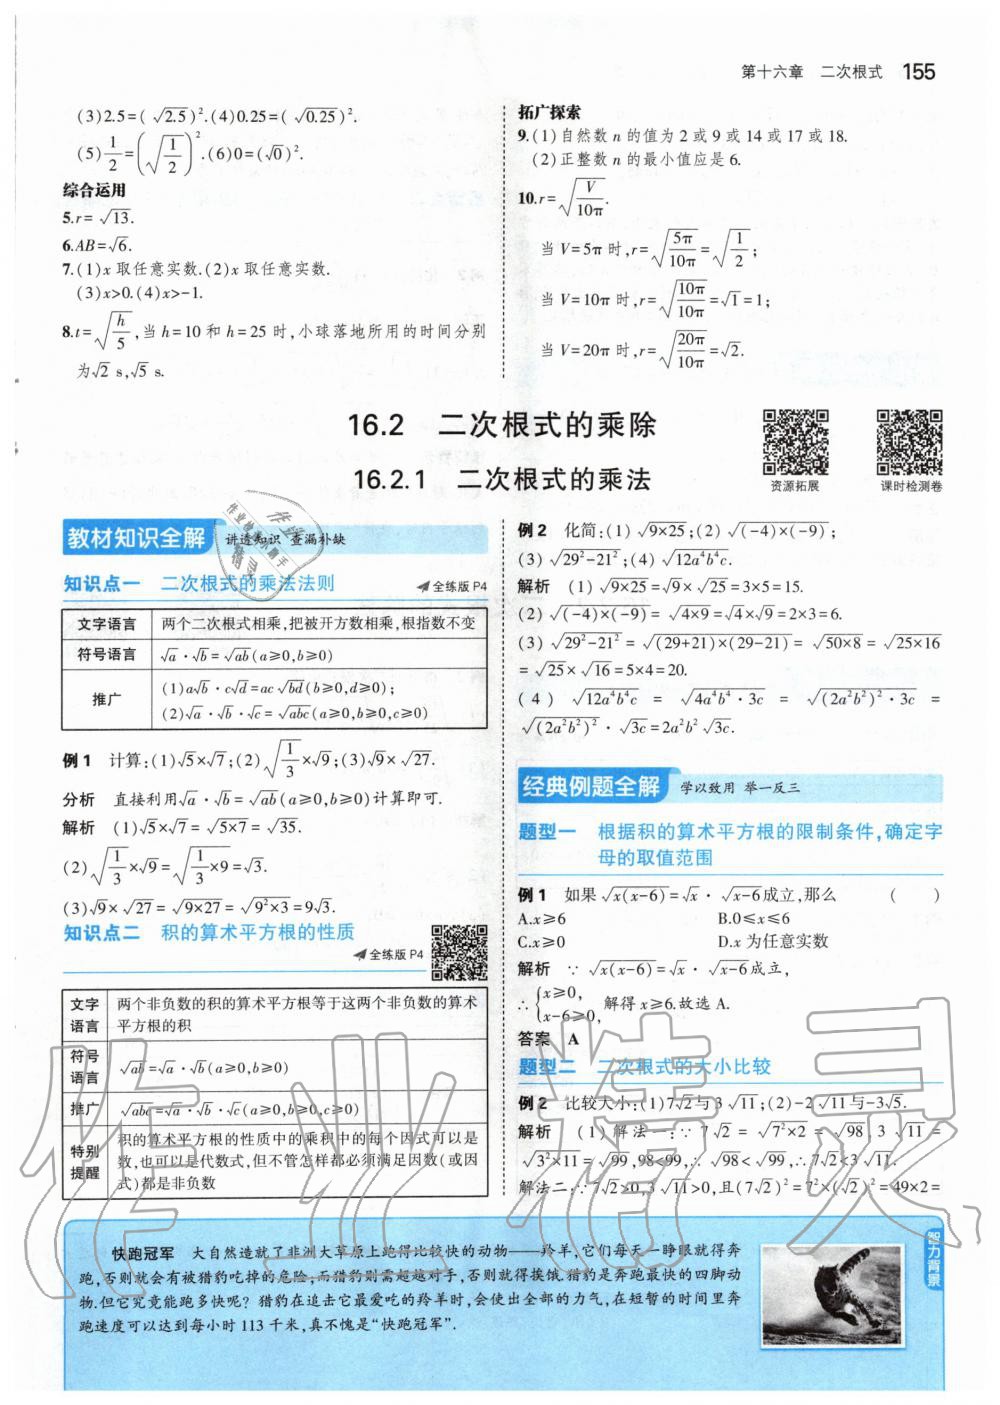 第十六章 二次根式 155
(3)2.5=(√2.5)².(4)0.25=(√0.25)².
(5)1/2=(√(1/2))².(6)0=(√0)².
综合运用
5.r=√13.
6.AB=√6.
7.(1)x取任意实数.(2)x取任意实数.
(3)x>0.(4)x>-1.
8.t=√(h/5),当h=10和h=25时,小球落地所用的时间分别
为√2 s,√5 s.
拓广探索
9.(1)自然数n的值为2或9或14或17或18.
(2)正整数n的最小值应是6.
10.r=√(V/10π).
当V=5π时,r=√(5π/10π)=√(1/2);
当V=10π时,r=√(10π/10π)=√1=1;
当V=20π时,r=√(20π/10π)=√2.
16.2 二次根式的乘除
16.2.1 二次根式的乘法
资源拓展
课时检测卷
教材知识全解 讲透知识 查漏补缺
知识点一 二次根式的乘法法则 全练版P4
文字语言 两个二次根式相乘,把被开方数相乘,根指数不变
符号语言 √a·√b=√ab(a≥0,b≥0)
推广 (1)a√b·c√d=ac√bd(b≥0,d≥0);
(2)√a·√b·√c=√abc(a≥0,b≥0,c≥0)
例1 计算:(1)√5×√7;(2)√(1/3)×√9;(3)√9×√27.
分析 直接利用√a·√b=√ab(a≥0,b≥0)计算即可.
解析 (1)√5×√7=√(5×7)=√35.
(2)√(1/3)×√9=√(1/3×9)=√3.
(3)√9×√27=√(9×27)=√(9²×3)=9√3.
知识点二 积的算术平方根的性质
全练版P4
文字语言 两个非负数的积的算术平方根等于这两个非负数的算术
平方根的积
符号语言 √ab=√a·√b(a≥0,b≥0)
推广 √abc=√a·√b·√c(a≥0,b≥0,c≥0)
特别提醒 积的算术平方根的性质中的乘积中的每个因式可以是
数,也可以是代数式,但不管怎样都必须满足因数(或因
式)都是非负数
例2 化简:(1)√(9×25);(2)√((-4)×(-9));
(3)√(29²-21²);(4)√(12a⁴b⁴c).
解析 (1)√(9×25)=√9×√25=3×5=15.
(2)√((-4)×(-9))=√(4×9)=√4×√9=2×3=6.
(3)√(29²-21²)=√((29+21)×(29-21))=√(50×8)=√(25×16)
=√25×√16=5×4=20.
(4)√(12a⁴b⁴c)=√(4a⁴b⁴·3c)=√((2a²b²)²·3c)=
√((2a²b²)²)·√3c=2a²b²√3c.
经典例题全解 学以致用 举一反三
题型一 根据积的算术平方根的限制条件,确定字
母的取值范围
例1 如果√(x(x-6))=√x·√(x-6)成立,那么 ( )
A.x≥6 B.0≤x≤6
C.x≥0 D.x为任意实数
解析 ∵√(x(x-6))=√x·√(x-6)成立,
∴{x≥0, x-6≥0, 解得x≥6.故选A.
答案 A
题型二 二次根式的大小比较
例2 比较大小:(1)7√2与3√11;(2)-2√11与-3√5.
解析 (1)解法一:∵7√2=√(7²×2)=√98,3√11=
√(3²×11)=√99,98<99,∴√98<√99,∴7√2<3√11.
解法二:∵7√2>0,3√11>0,且(7√2)²=7²×(√2)²=49×2=
快跑冠军 大自然造就了非洲大草原上跑得比较快的动物——羚羊,它们每天一睁眼就得奔
跑,否则就会有被猎豹吃掉的危险,而猎豹则需超越对手,否则就得挨饿.猎豹是奔跑最快的四脚动
物.但它究竟能跑多快呢?猎豹在追击它最爱吃的羚羊时,会使出全部的力气,在短暂的时间里奔
跑速度可以达到每小时113千米,真不愧是“快跑冠军”.
智力背景
作业精灵